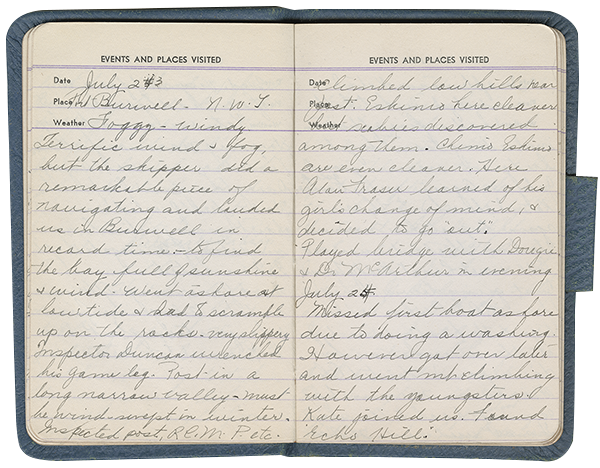 EVENTS AND PLACES VISITED
Date July 23
Place Burwell - N.W.T.
Weather Foggy - windy
Terrific wind & fog,
but the skipper did a
remarkable piece of
navigating and landed
us in Burwell in
record time - to find
the bay full of sunshine
& wind - Went ashore at
low tide & had to scramble
up on the rocks - very slippery
Inspector Duncan wrenched
his game leg. Post in a
long narrow valley - must
be wind-swept in winter.
Inspected post, R.C.M.P. etc.
EVENTS AND PLACES VISITED
Date Climbed low hills near
Place Post. Eskimo here cleaner
Weather scabies discovered
among them. Chimo Eskimo
are even cleaner. Here
Alan Fraser learned of his
girl's change of mind, &
decided to "go out".
Played bridge with Dougie
& Dr McArthur in evening
July 24
Missed first boat ashore
due to doing a washing.
However got over later
and went mt climbing
with the youngsters.
Kate joined us. Found
"Echo Hill".